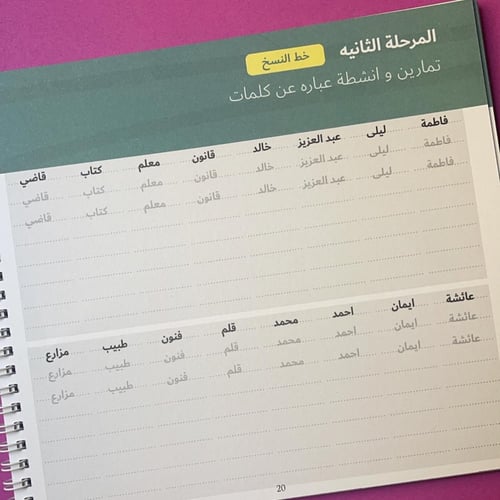 المرحلة الثانيه
خط النسخ
تمارين و انشطة عباره عن كلمات
فاطمة ليلى عبد العزيز خالد قانون معلم كتاب قاضي
فاطمة ليلى عبد العزيز خالد قانون معلم كتاب قاضي
فاطمة ليلى عبد العزيز خالد قانون معلم كتاب قاضي
عائشة ايمان احمد محمد قلم فنون طبيب مزارع
عائشة ايمان احمد محمد قلم فنون طبيب مزارع
عائشة ايمان احمد محمد قلم فنون طبيب مزارع
20